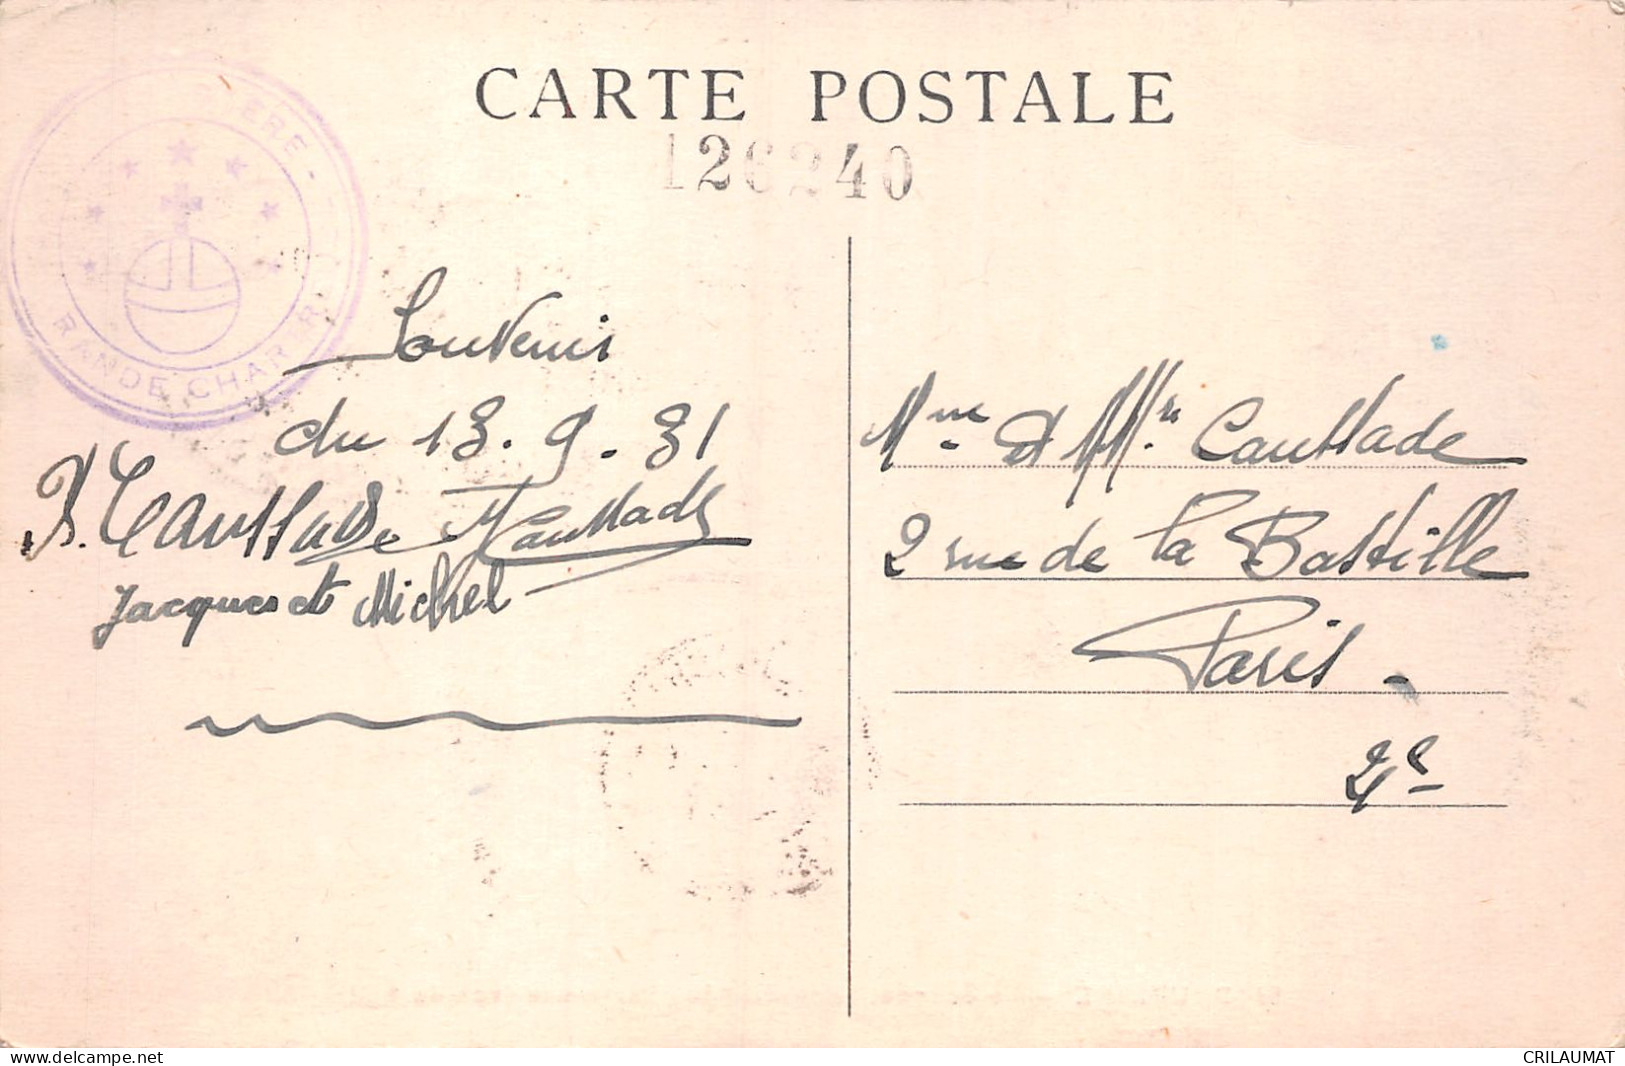 CARTE POSTALE
126240
RANDE CHAR
Souvenir
du 13.9.31
Jacques et Michel
Mme et Mr Caussade
2 rue de la Bastille
Paris.
4e
www.delcampe.net
CRILAUMAT